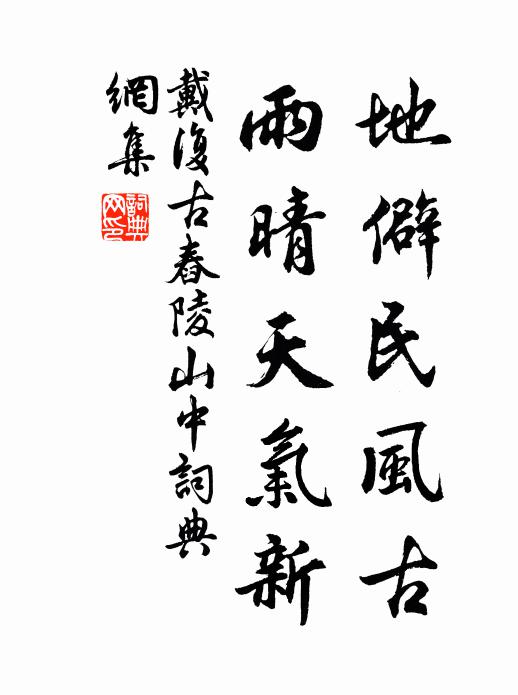 地僻民風古
雨晴天氣新
戴復古舂陵山中詞典
網集
詞典
网印